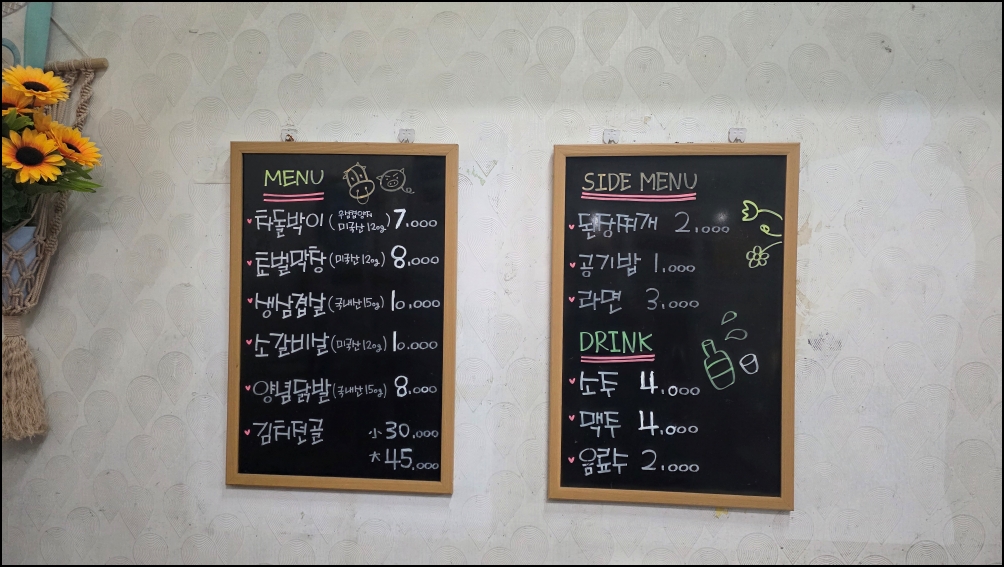 MENU
차돌박이 (우삼겹양지 미국산 120g) 7,000
초벌막창 (미국산 120g) 8,000
생삼겹살 (국내산 150g) 10,000
소갈비살 (미국산 120g) 10,000
양념닭발 (국내산 150g) 8,000
김치전골 小 30,000
大 45,000
SIDE MENU
된장찌개 2,000
공기밥 1,000
라면 3,000
DRINK
소주 4,000
맥주 4,000
음료수 2,000